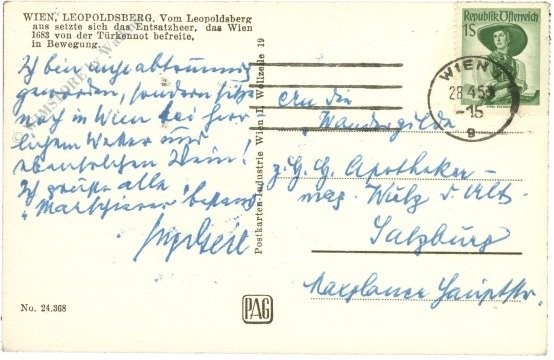 WIEN, LEOPOLDSBERG. Vom Leopoldsberg
aus setzte sich das Entsatzheer, das Wien
1683 von der Türkennot befreite,
in Bewegung.
Ich bin nicht abtrünnig
geworden, sondern sitze
noch in Wien bei herr
lichem Wetter und
ebensolchem Wein!
Ich grüße alle
"Marschierer" bestens
No. 24.368
Postkarten-Industrie Wien I, Wollzeile 19
PAG
Republik Österreich
1S
WIEN
28.4.53
-15
9
An die
"Wandergilde"
z. H. Apotheker-
mag. Wulz
Salzburg
Maxglaner Hauptstr.